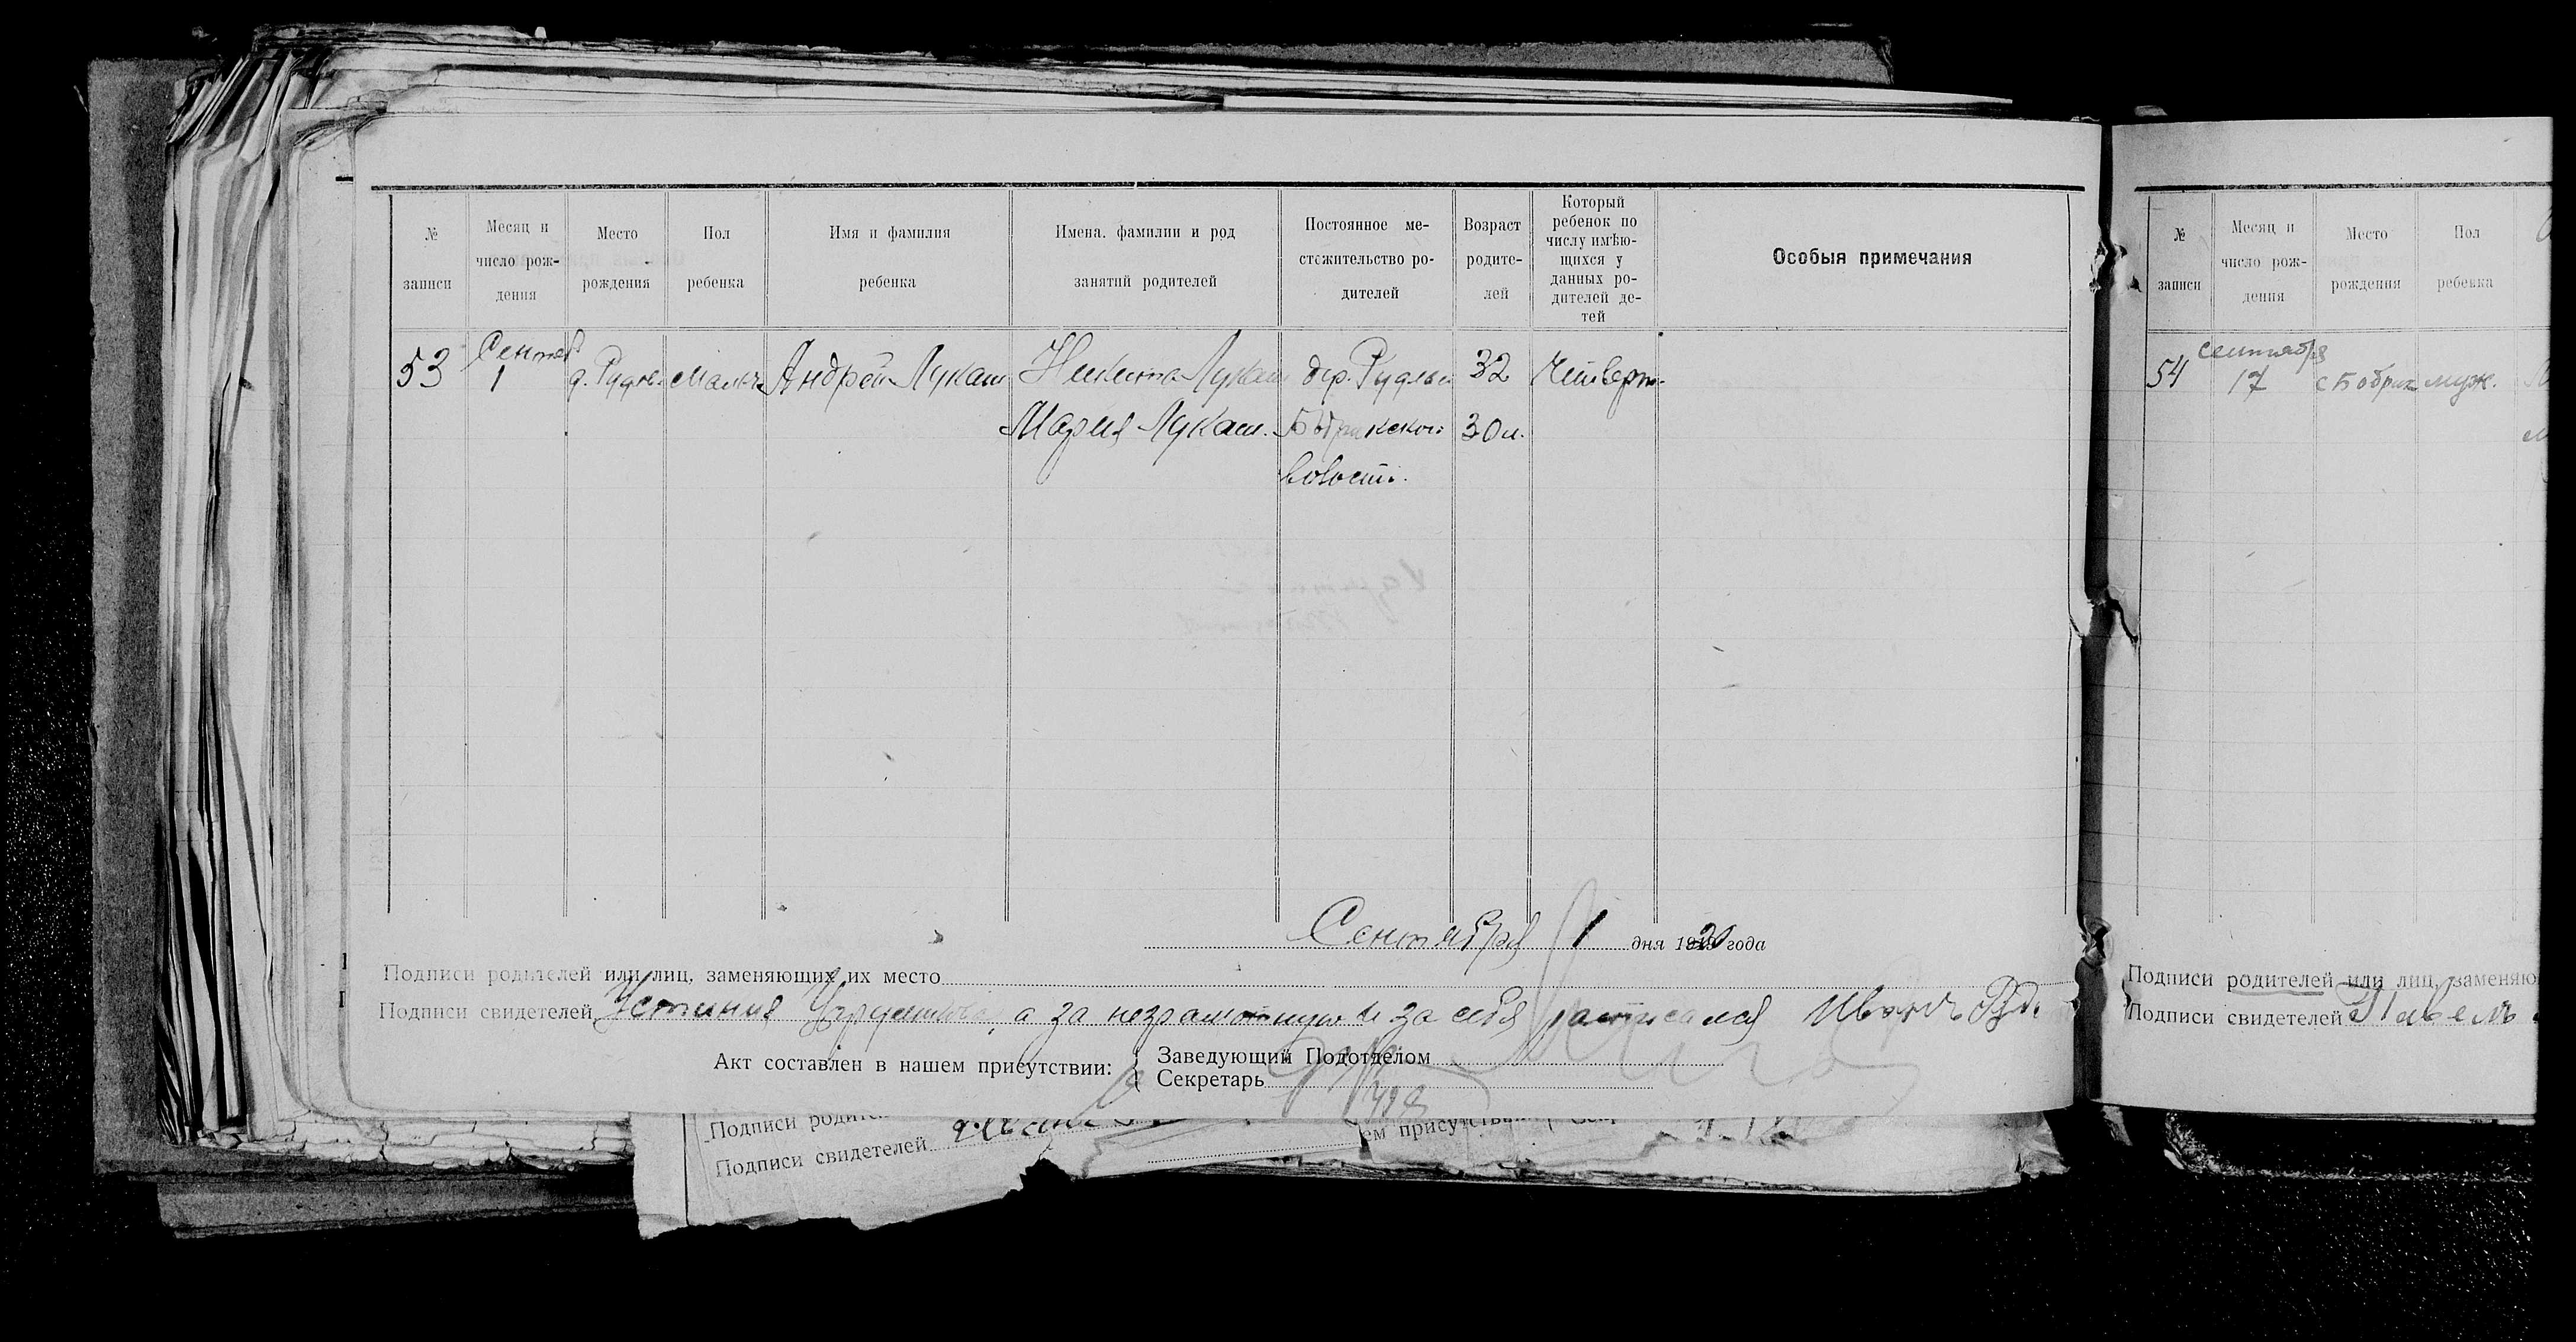 № записи
Месяц и число рож-дения
Место рождения
Пол ребенка
Имя и фамилия ребенка
Имена, фамилии и род занятий родителей
Постоянное ме-стожительство ро-дителей
Возраст родите-лей
Который ребенок по числу имѣю-щихся у данных ро-дителей де-тей
Особыя примечания
53 Сентяб. 1 д. Рудня мальч. Андрей Лукаш Никита Лукаш дер. Рудня 32 Четверт.
Мария Лукаш. 30 л.
волости.
Сентября 1 дня 1920 года
Подписи родителей или лиц, заменяющих их место
Подписи свидетелей Устиния а за неграмотную и за себя расписался Иванъ
Акт составлен в нашем присутствии: Заведующий Подотделом
Секретарь
Подписи родите
Подписи свидетелей
ем присутствии
№ записи
Месяц и число рож-дения
Место рождения
Пол ребенка
54 сентября 17 с Бобрик муж.
Подписи родителей или лиц, заменяю
Подписи свидетелей Павелъ